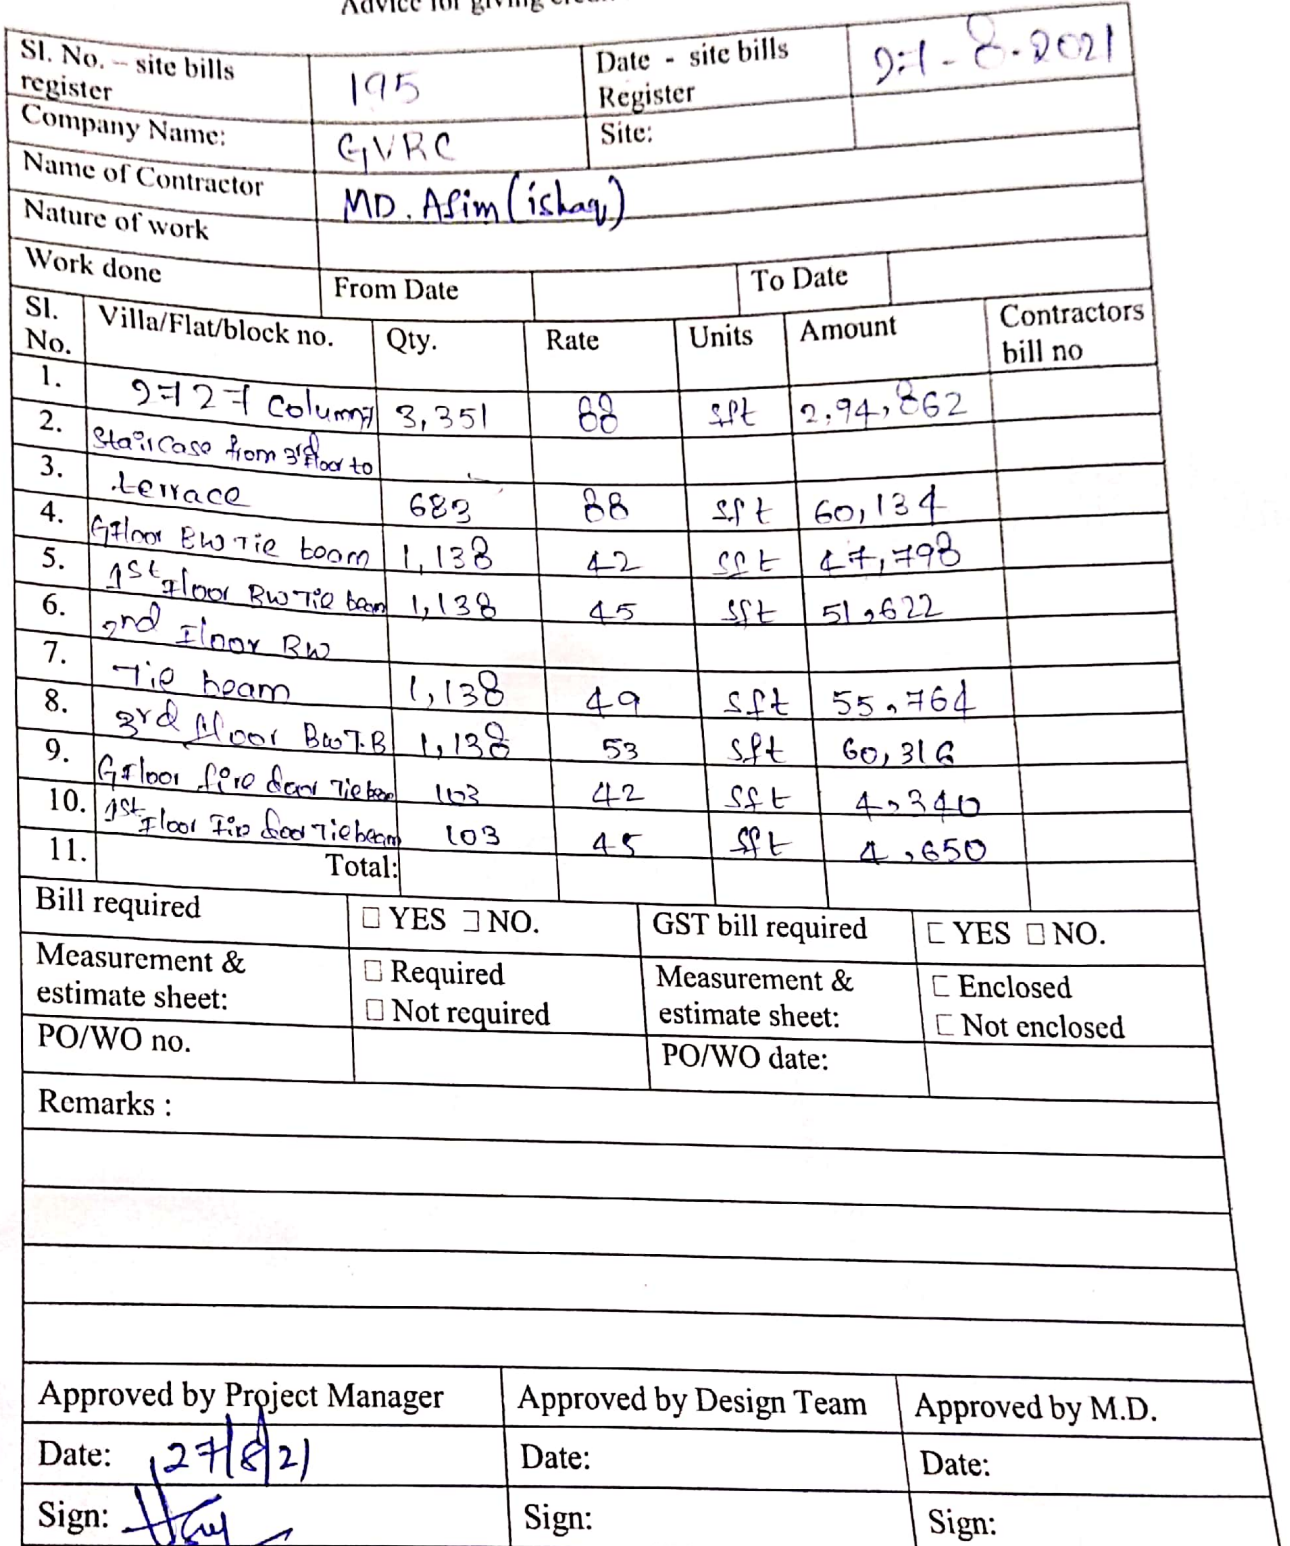 Advice for giving
Sl. No. – site bills register 195 Date - site bills Register 27-8-2021
Company Name: GVRC Site:
Name of Contractor MD. Asim (ishaq)
Nature of work
Work done From Date To Date
Sl. No. Villa/Flat/block no. Qty. Rate Units Amount Contractors bill no
1. 2727 Column 3,351 88 sft 2,94,862
2. Staircase from 3rd floor to
3. terrace 683 88 sft 60,134
4. G Floor BW Tie beam 1,138 42 sft 47,798
5. 1st Floor BW Tie beam 1,138 45 sft 51,622
6. 2nd Floor BW
7. Tie beam 1,138 49 sft 55,764
8. 3rd floor BW T.B 1,138 53 sft 60,316
9. G Floor fire door Tie beam 103 42 sft 4,340
10. 1st Floor Fire door Tie beam 103 45 sft 4,650
11. Total:
Bill required □ YES □ NO. GST bill required □ YES □ NO.
Measurement & estimate sheet: □ Required □ Not required Measurement & estimate sheet: □ Enclosed □ Not enclosed
PO/WO no. PO/WO date:
Remarks :
Approved by Project Manager Approved by Design Team Approved by M.D.
Date: 27/8/21 Date: Date:
Sign: Sign: Sign: